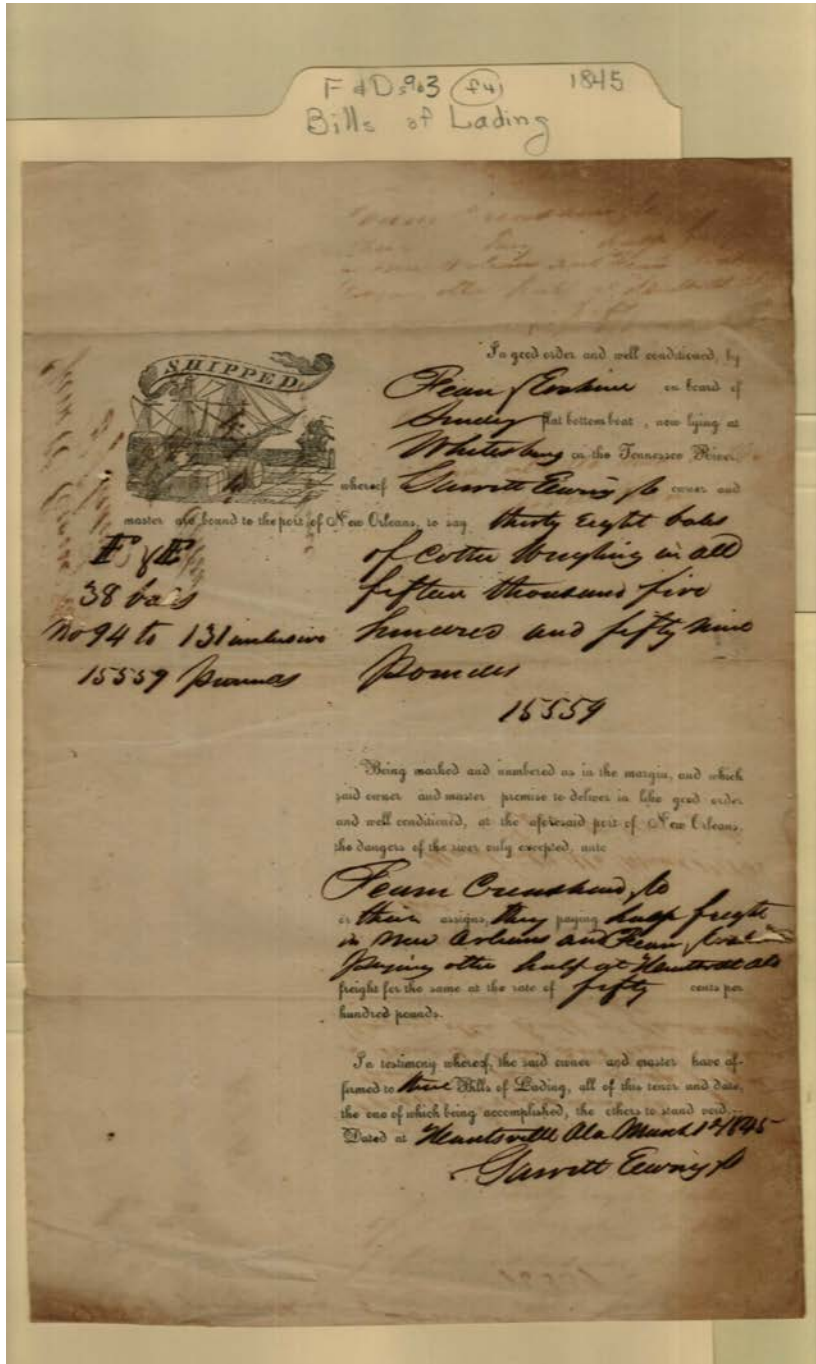 F & D 903 (f4) 1845
Bills of Lading
SHIPPED
In good order and well conditioned, by
Fearn & Erskine on board of
flat bottom boat, now lying at
Whitesburg on the Tennessee River,
whereof Garrett Ewing & Co owner and
master are bound to the port of New Orleans, to say thirty eight bales
F & E
of Cotton Weighing in all
38 bals
fifteen thousand five
No 94 to 131 inclusive
hundred and fifty nine
15559 Pounds
Pounds
15559
Being marked and numbered as in the margin, and which
said owner and master promise to deliver in like good order
and well conditioned, at the aforesaid port of New Orleans,
the dangers of the river only excepted, unto
or their assigns, they paying half freight
in New Orleans and Fearn &
Paying other half at Huntsville Ala
freight for the same at the rate of fifty cents per
hundred pounds.
In testimony whereof, the said owner and master have af-
firmed to three Bills of Lading, all of this tenor and date,
the one of which being accomplished, the others to stand void.
Dated at Huntsville Ala March 1st 1845
Garrett Ewing & Co